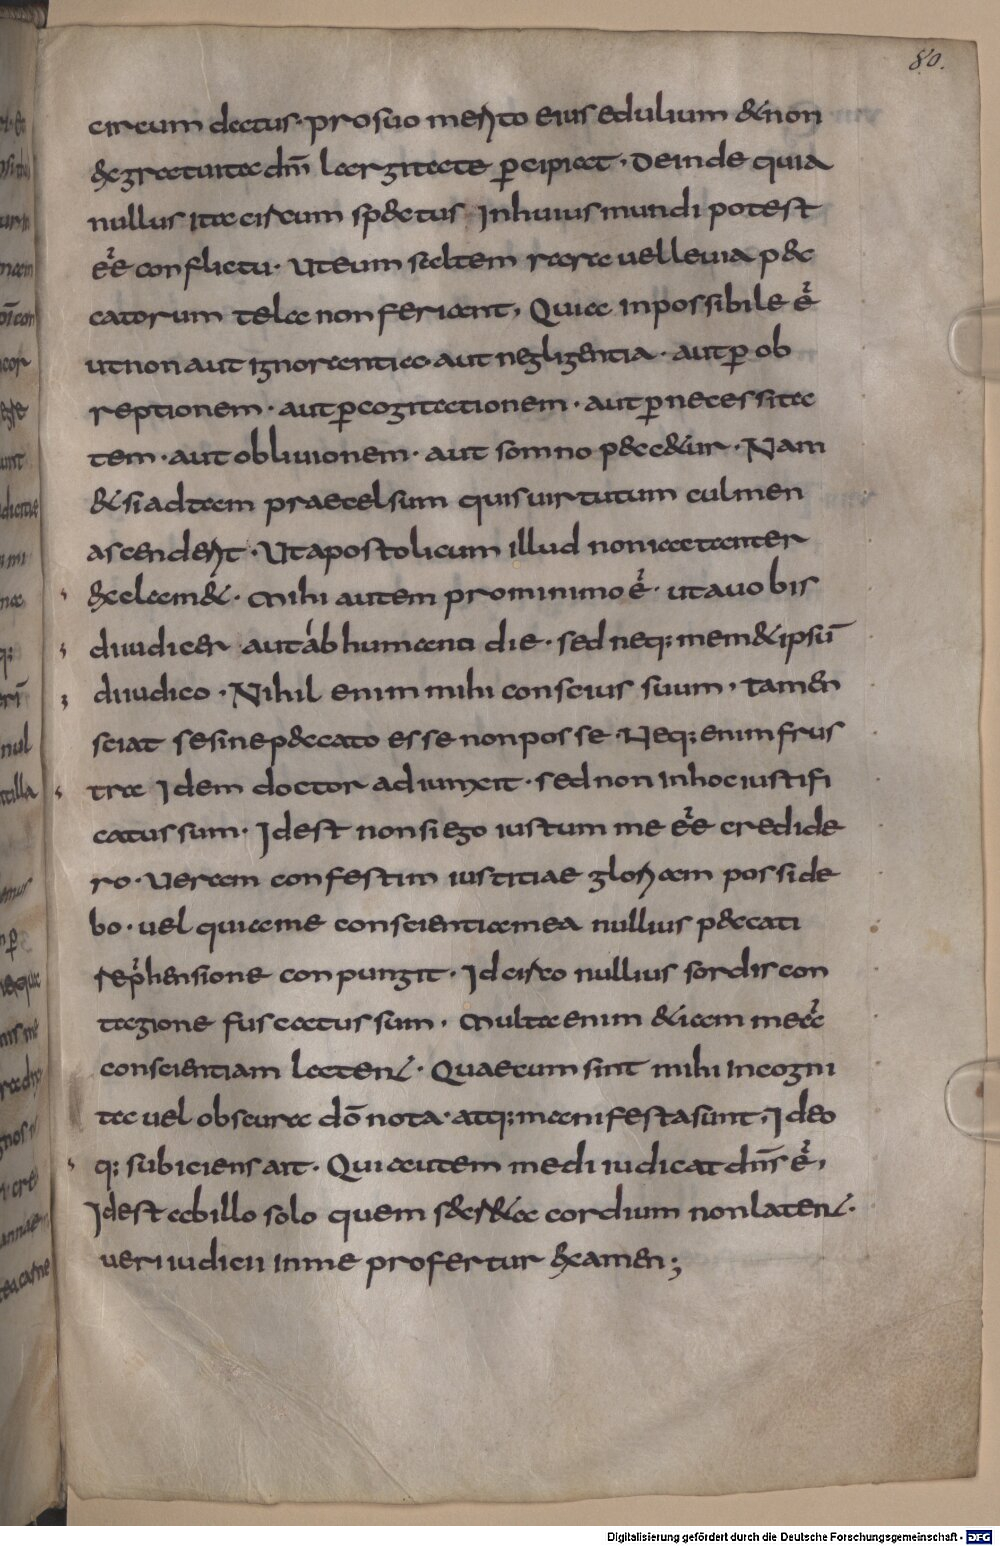 80.
circumdatus· pro suo merito eius edulium & non
ex gratuita dn̄i largitate ꝑcipiat· Deinde quia
nullus ita circumsp&ctus In huius mundi potest
eē conflictu· Ut eum saltem rara uel leuia p&c
catorum tela non feriant, Quia inpossibile ē
ut non aut ignorantia· aut negligentia· aut ꝑ ob
reptionem· aut ꝑ cogitationem· aut ꝑ necessita
tem· aut obliuionem· aut somno p&cc&ur· Nam
& si ad tam praecelsum quis uirtutum culmen
ascenderit· Ut apostolicum illud non iactanter
exclam&· Mihi autem pro minimo ē· ut a uobis
diiudicer aut ab humana die· sed neq; mem&ipsū
diiudico· Nihil enim mihi conscius suum· tamen
sciat se sine p&ccato esse non posse Neq; enim frus
tra Idem doctor adiunxit· sed non in hoc iustifi
catus sum· Id est non si ego iustum me eē credide
ro· Ueram confestim iustitiae gloriam posside
bo· uel quia me conscientia mea nullius p&ccati
rep̄hensione conpungit· Idcirco nullius sordis con
tagione fuscatus sum, Multa enim &iam meā
conscientiam laten&· Quae cum sint mihi incogni
ta uel obscura dō nota· atq; manifesta sunt, Ideo
q; subiciens ait· Qui autem me diiudicat dn̄s ē,
Id est ab illo solo quem s&cr&a cordium non laten&·
ueri iudicii in me profertur examen;
Digitalisierung gefördert durch die Deutsche Forschungsgemeinschaft - DFG